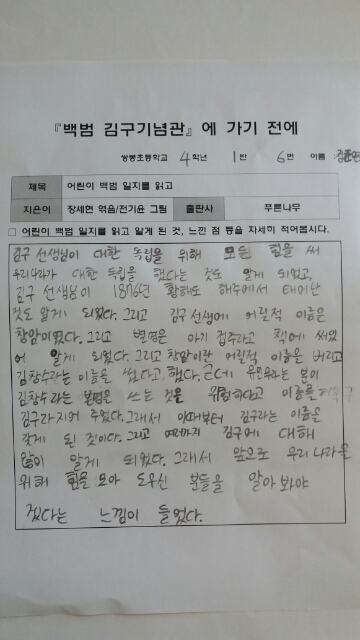 『백범 김구기념관』에 가기 전에
쌍봉초등학교 4학년 1반 6번 이름:
제목 어린이 백범 일지를 읽고
지은이 장세현 엮음/전기윤 그림 출판사 푸른나무
□ 어린이 백범 일지를 읽고 알게 된 것, 느낀 점 등을 자세히 적어봅시다.
김구 선생님이 대한 독립을 위해 모든 힘을 써
우리나라가 대한 독립을 했다는 것도 알게 되었고,
김구 선생님이 1876년 황해도 해주에서 태어난
것도 알게 되었다. 그리고 김구 선생에 어릴적 이름은
창암이였다. 그리고 별명은 아기 접주라고 책에 써있
어 알게 되었다. 그리고 창암이란 어릴적 이름은 버리고
김창수라는 이름을 썼다고 했다. 근데 유완무라는 분이
김창수라는 본명은 쓰는 것을 위험하다고 이름을
김구라 지어 주었다. 그래서 이때부터 김구라는 이름을
갖게 된 것이다. 그리고 여러가지 김구에 대해
많이 알게 되었다. 그래서 앞으로 우리나라을
위해 힘을 모아 도우신 분들을 알아 봐야
겠다는 느낌이 들었다.